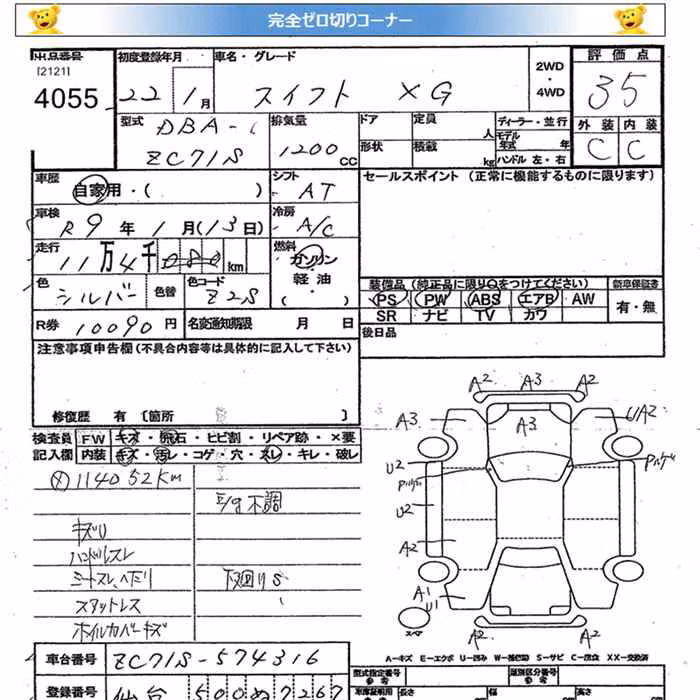 完全ゼロ切りコーナー
出品番号 初度登録年月 車名・グレード 2WD・4WD 評価点
[2121]
4055 22 1月 スイフト XG 35
型式 DBA- 排気量 ドア 定員 人 ディーラー・並行 外装 内装
モデル年式 年
ZC71S 1200CC 形状 積載 kg ハンドル 左・右 C C
車歴 自家用・( ) シフト AT セールスポイント (正常に機能するものに限ります)
車検 R9年1月(13日) 冷房 A/C
走行 11万4千080km 燃料 ガソリン・軽油・( )
色 シルバー 色替 色コード Z2S
装備品 (純正品に限り○をつけてください) 新車保証書
PS PW ABS エアB AW 有・無
SR ナビ TV カワ
R券 10090円 名変通知期限 月 日
後日品
注意事項申告欄(不具合内容等は具体的に記入して下さい)
修復歴 有 [箇所 ]
検査員 FW キズ・飛石・ヒビ割・リペア跡・×要
記入欄 内装 キズ・汚レ・コゲ・穴・スレ・キレ・破レ
114052Km
不調
キズU
ハンドルスレ
シートスレ、ヘタリ 下廻りS
スタットレス
ホイルカバーキズ
A2 A3 A2
A3 A3 UA2
U2
U2
A2
A1
U1
スペア
A2 A2
A-キズ E-エクボ U-凹み W-補修跡 S-サビ C-腐食 XX-交換済
車台番号 ZC71S-574316
登録番号 仙台 500 ぬ 7267
型式指定番号 参考 類別区分番号 参考
長さ 幅 高さ